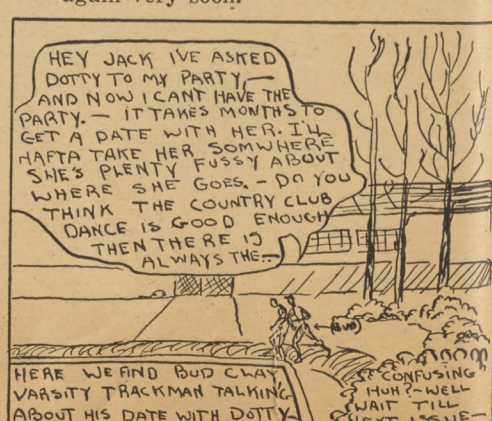 again very soon.
HEY JACK I'VE ASKED
DOTTY TO MY PARTY,—
AND NOW I CANT HAVE THE
PARTY.— IT TAKES MONTHS TO
GET A DATE WITH HER. I'LL
HAFTA TAKE HER SOMWHERE
SHE'S PLENTY FUSSY ABOUT
WHERE SHE GOES.— DO YOU
THINK THE COUNTRY CLUB
DANCE IS GOOD ENOUGH
THEN THERE IS
ALWAYS THE—
BUD
HERE WE FIND BUD CLAY
VARSITY TRACKMAN TALKING
ABOUT HIS DATE WITH DOTTY
CONFUSING
HUH?—WELL
WAIT TILL
NEXT ISSUE—